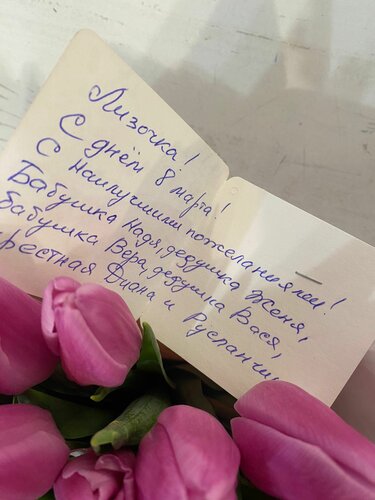 Лизочка!
С днём 8 марта!
С наилучшими пожеланиями!
Бабушка Надя, дедушка Женя,
бабушка Вера, дедушка Вася,
крестная Диана и